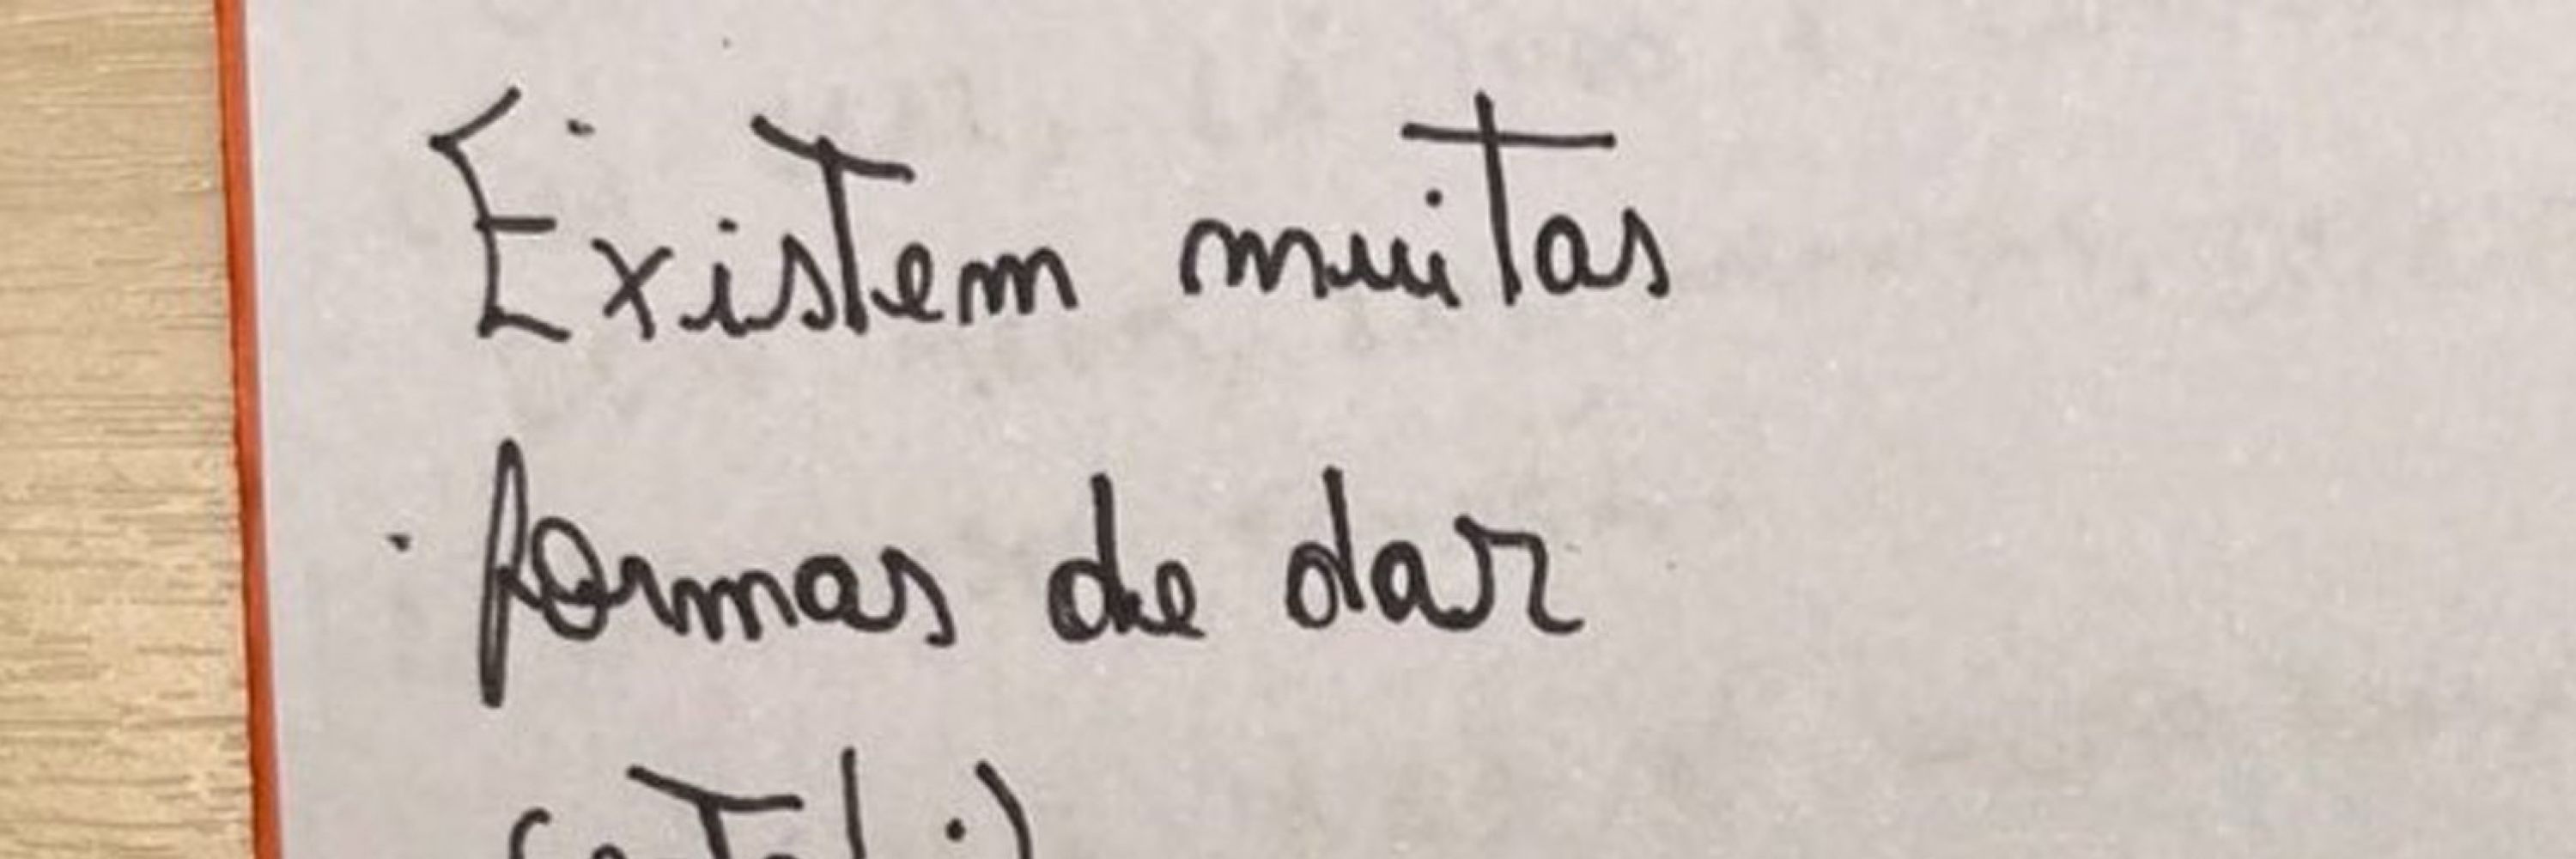 Existem muitas
formas de dar